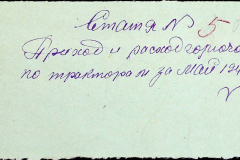 Статья № 5
Приход и расход горючего
по тракторам за май 194